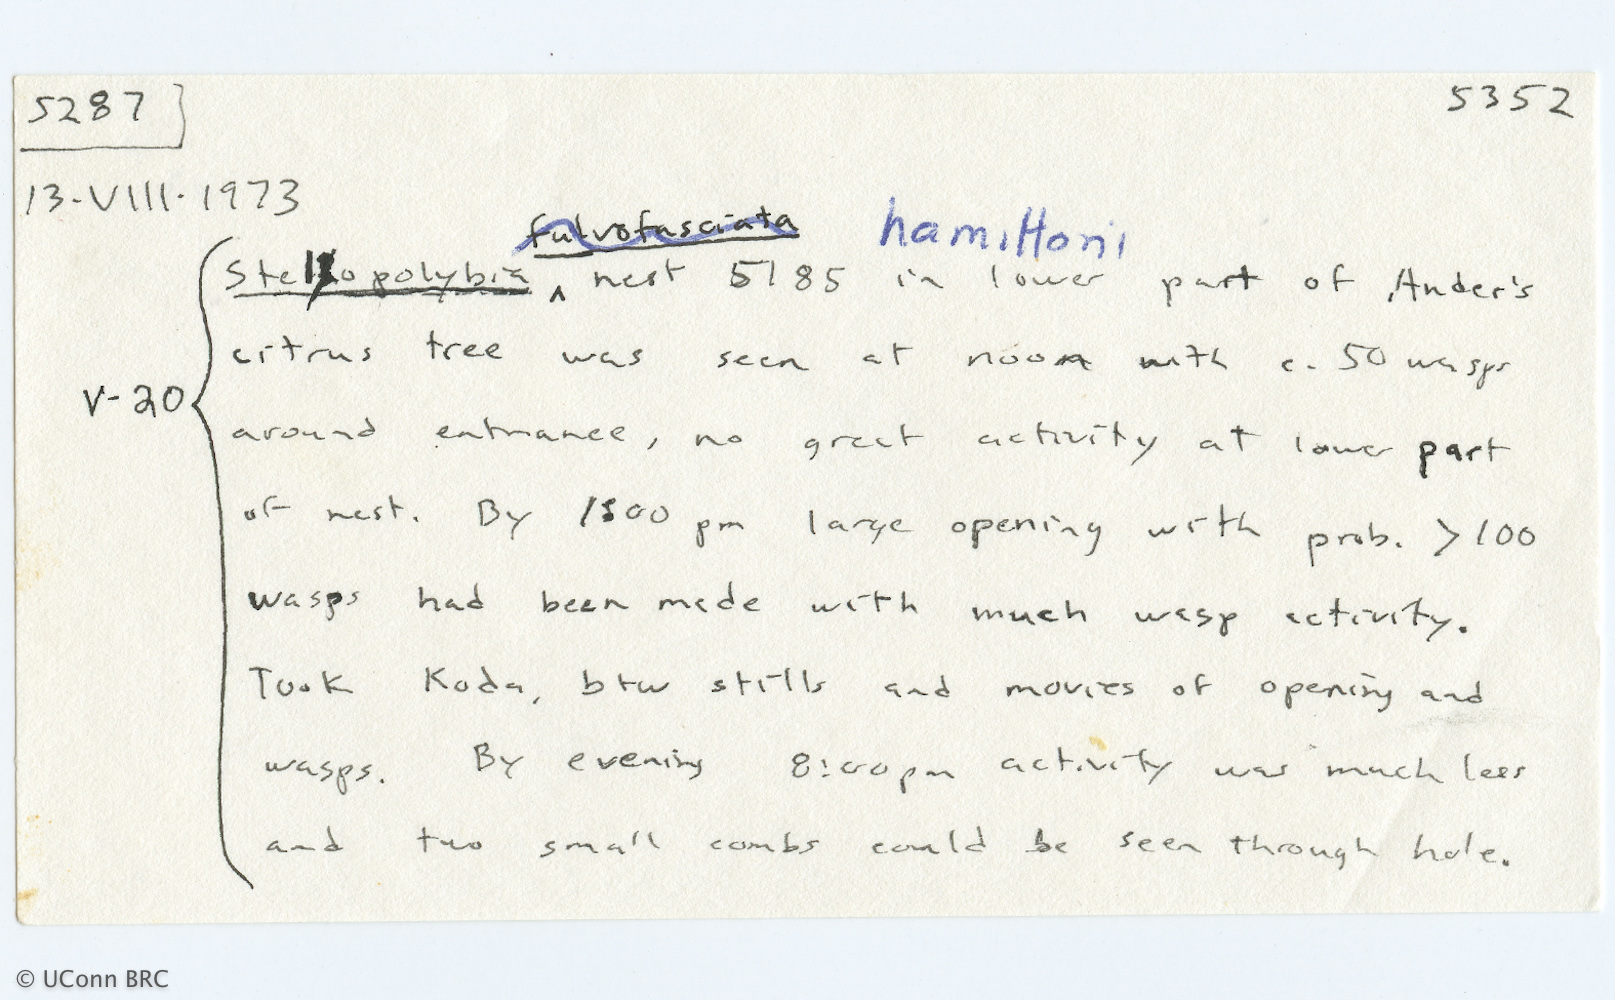 5287
5352
13-VIII-1973
fulvofasciata hamiltoni
Stelopolybia ^ nest 5185 in lower part of Ander's
citrus tree was seen at noon with c. 50 wasps
V-20
around entrance, no great activity at lower part
of nest. By 1500 pm large opening with prob. >100
wasps had been made with much wasp activity.
Took Koda, b+w stills and movies of opening and
wasps. By evening 8:00pm activity was much less
and two small combs could be seen through hole.
© UConn BRC